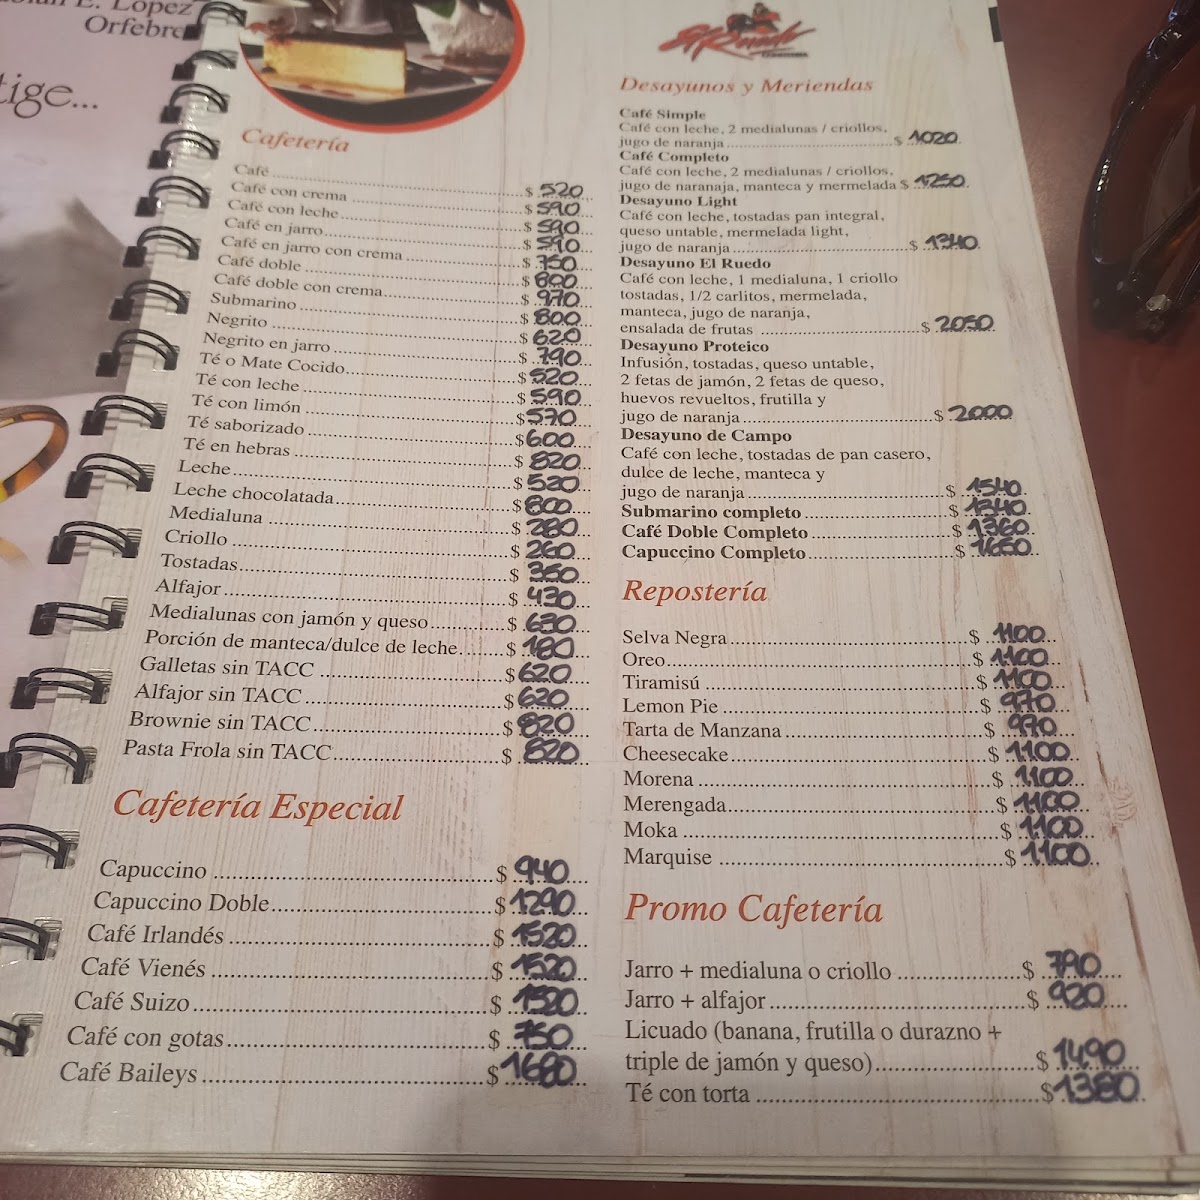 E. López
Orfebre
tige...
El Ruedo
Cafetería
Café $ 520
Café con crema $ 590
Café con leche $ 590
Café en jarro $ 590
Café en jarro con crema $ 750
Café doble $ 800
Café doble con crema $ 970
Submarino $ 800
Negrito $ 620
Negrito en jarro $ 790
Té o Mate Cocido $ 520
Té con leche $ 590
Té con limón $ 570
Té saborizado $ 600
Té en hebras $ 820
Leche $ 520
Leche chocolatada $ 800
Medialuna $ 280
Criollo $ 260
Tostadas $ 350
Alfajor $ 430
Medialunas con jamón y queso $ 630
Porción de manteca/dulce de leche $ 180
Galletas sin TACC $ 620
Alfajor sin TACC $ 620
Brownie sin TACC $ 820
Pasta Frola sin TACC $ 820
Cafetería Especial
Capuccino $ 940
Capuccino Doble $ 1290
Café Irlandés $ 1520
Café Vienés $ 1520
Café Suizo $ 1520
Café con gotas $ 750
Café Baileys $ 1680
Desayunos y Meriendas
Café Simple
Café con leche, 2 medialunas / criollos,
jugo de naranja $ 1020
Café Completo
Café con leche, 2 medialunas / criollos,
jugo de naranaja, manteca y mermelada $ 1250
Desayuno Light
Café con leche, tostadas pan integral,
queso untable, mermelada light,
jugo de naranja $ 1340
Desayuno El Ruedo
Café con leche, 1 medialuna, 1 criollo
tostadas, 1/2 carlitos, mermelada,
manteca, jugo de naranja,
ensalada de frutas $ 2050
Desayuno Proteico
Infusión, tostadas, queso untable,
2 fetas de jamón, 2 fetas de queso,
huevos revueltos, frutilla y
jugo de naranja $ 2000
Desayuno de Campo
Café con leche, tostadas de pan casero,
dulce de leche, manteca y
jugo de naranja $ 1540
Submarino completo $ 1340
Café Doble Completo $ 1360
Capuccino Completo $ 1650
Repostería
Selva Negra $ 1100
Oreo $ 1100
Tiramisú $ 1100
Lemon Pie $ 970
Tarta de Manzana $ 970
Cheesecake $ 1100
Morena $ 1100
Merengada $ 1100
Moka $ 1100
Marquise $ 1100
Promo Cafetería
Jarro + medialuna o criollo $ 790
Jarro + alfajor $ 920
Licuado (banana, frutilla o durazno +
triple de jamón y queso) $ 1490
Té con torta $ 1380